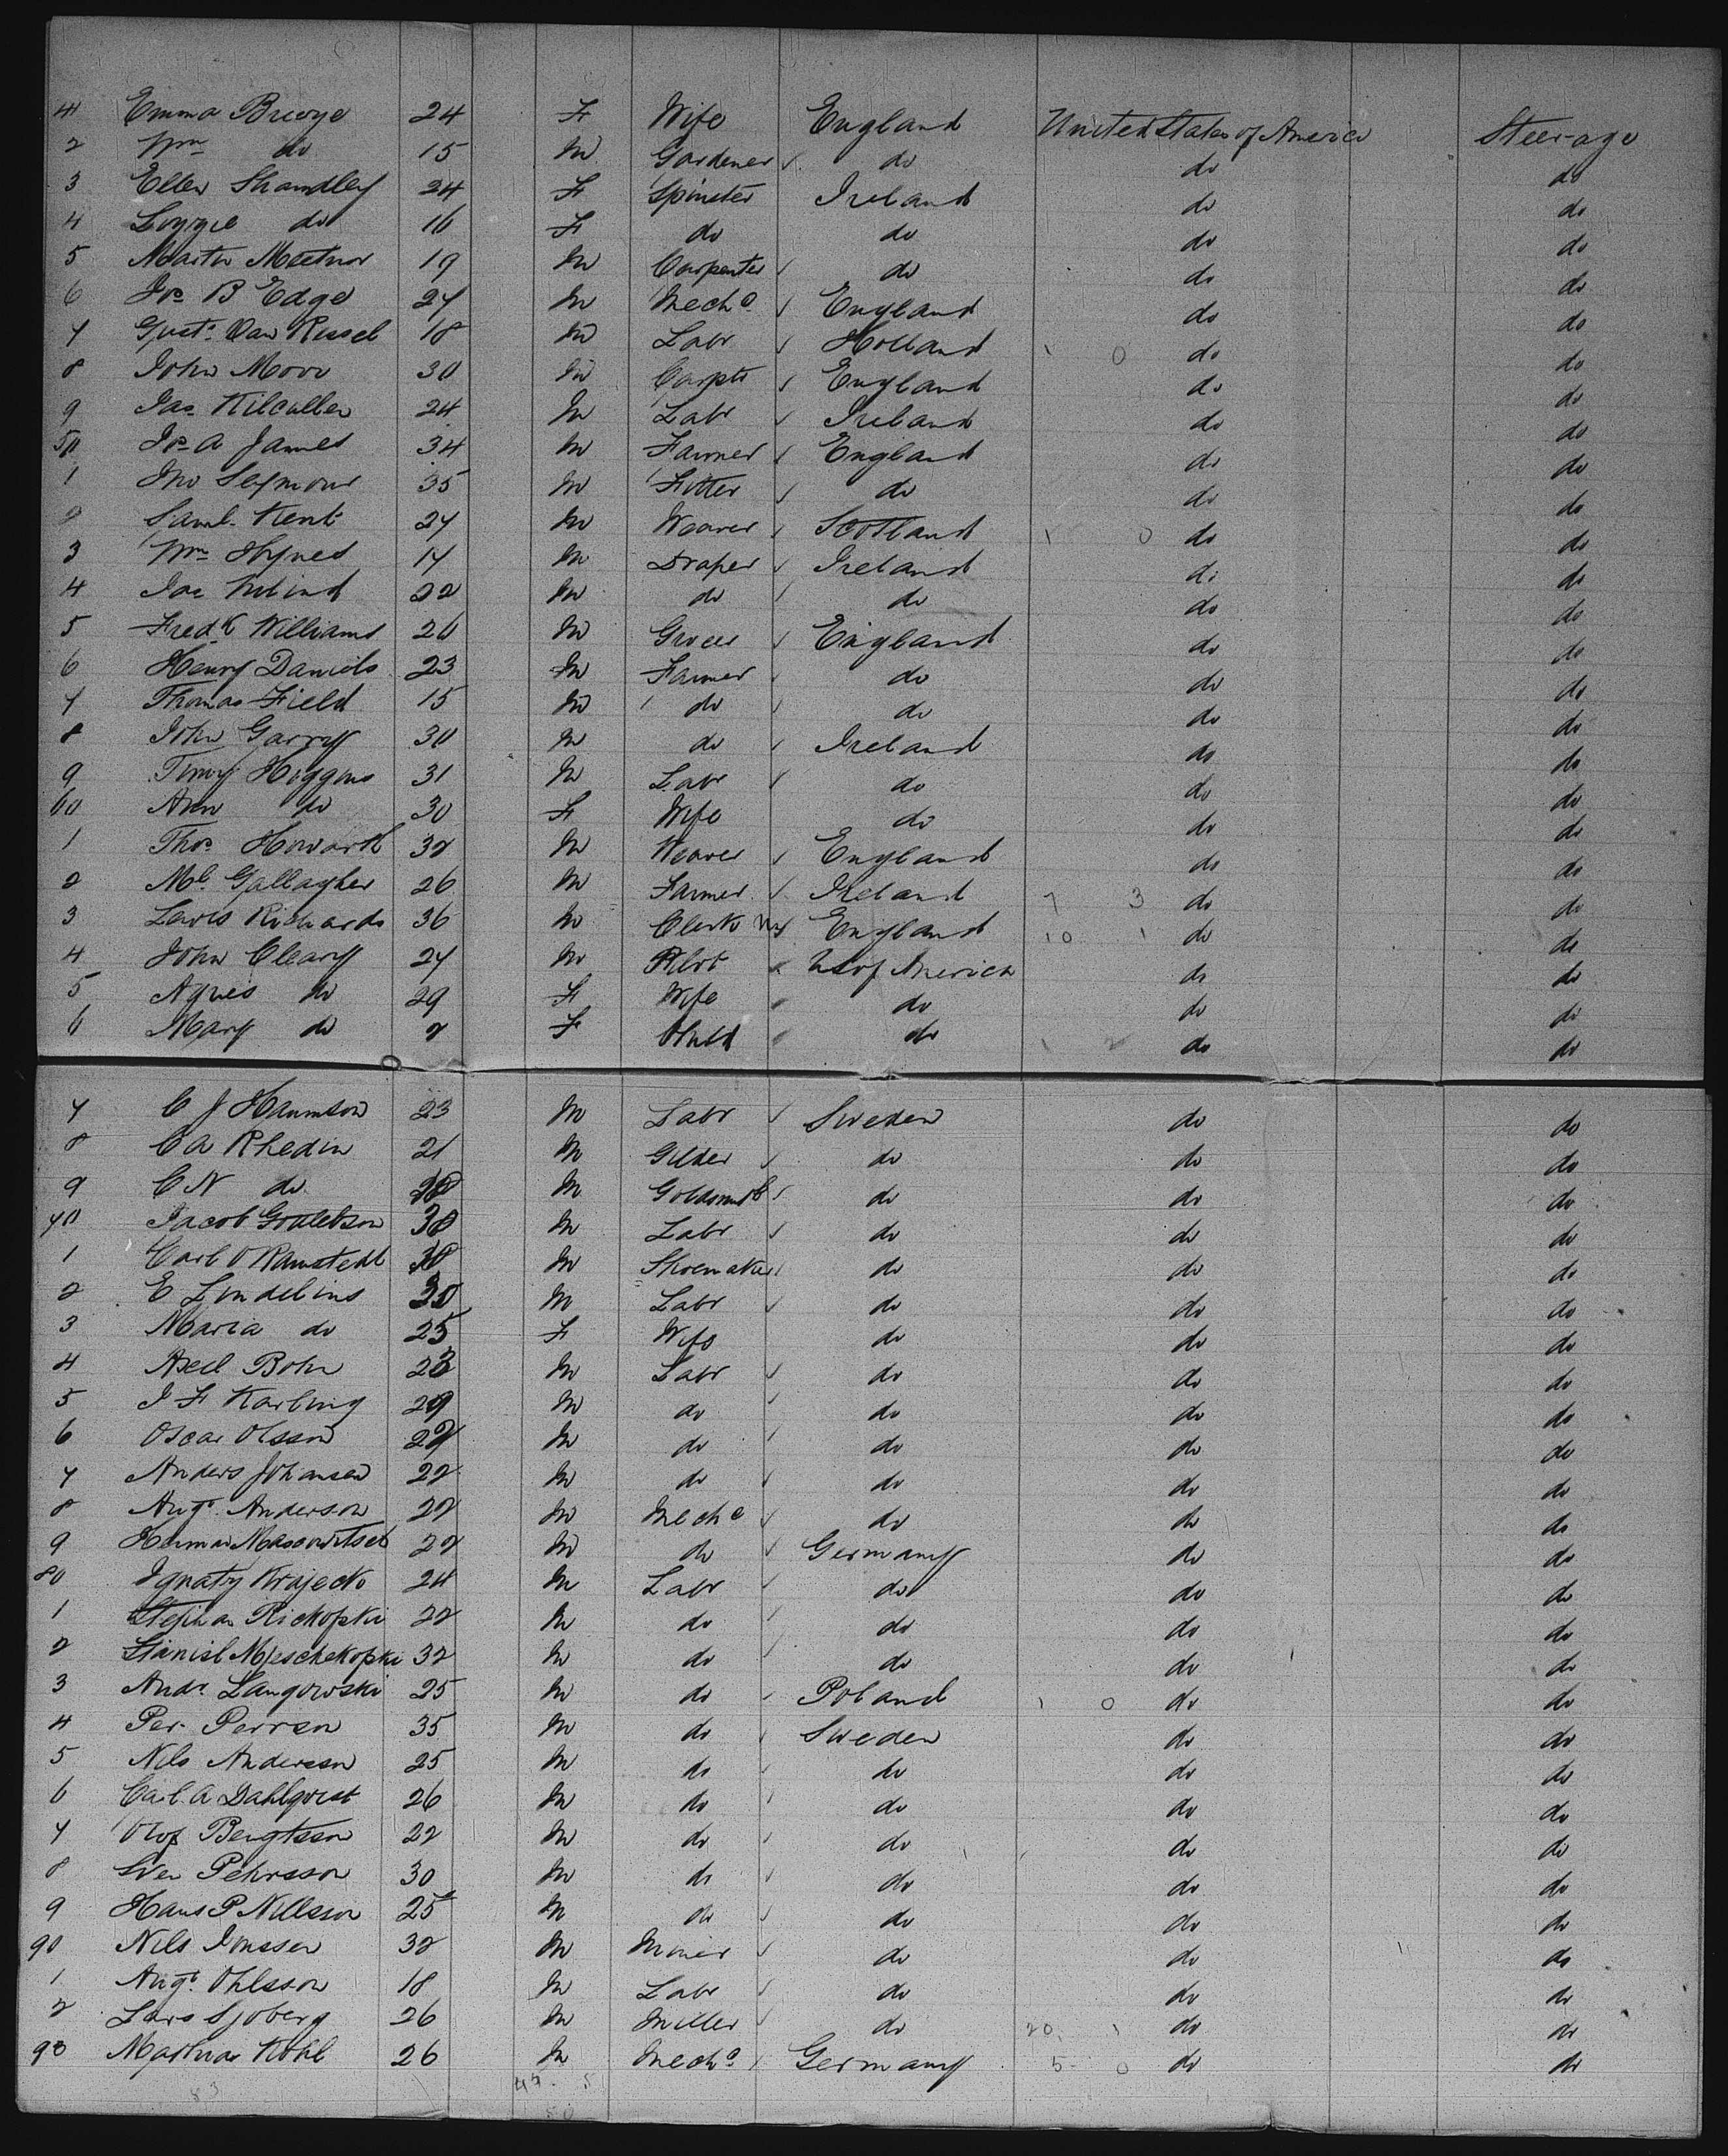 41 Emma Brwoye 24 F Wife England United States of America Steerage
2 Wm do 15 M Gardener do do do
3 Ellen Shandley 24 F Spinster Ireland do do
4 Lizzie do 16 F do do do do
5 Martin 19 M Carpenter do do do
6 Jos B Edge 27 M Mechc England do do
7 Gust. Van Ressel 18 M Labr Holland 1 0 do do
8 John Moor 30 M Carptr England do do
9 Jas Kilcullen 24 M Labr Ireland do do
50 Js A James 34 M Farmer England do do
1 Jno Seymour 35 M Fitter do do do
2 Saml. Kent 27 M Weaver Scotland 1 0 do do
3 Wm Hynes 17 M Draper Ireland do do
4 Jas 22 M do do do do
5 Fredk Williams 20 M Grocer England do do
6 Henry Daniels 23 M Farmer do do do
7 Thomas Field 15 M do do do do
8 John Garry 30 M do Ireland do do
9 Timy Higgins 31 M Labr do do do
60 Ann do 30 F Wife do do do
1 Thos Howarth 32 M Weaver England do do
2 Ml. Gallagher 26 M Farmer Ireland 7 3 do do
3 Lewis Richards 36 M Clerk England 10 1 do do
4 John Cleary 27 M Pilot US of America do do
5 Agnes do 29 F Wife do do do
6 Mary do 2 F Child do 1 2 do do
7 C J Hammson 23 M Labr Sweden do do
8 C A Rhedin 21 M Gilder do do do
9 C N do M Goldsmith do do do
70 Jacob Gottlebson 30 M Labr do do do
1 Carl O Ramstedt 30 M Shoemaker do do do
2 E Lindelius 30 M Labr do do do
3 Maria do 25 F Wife do do do
4 Axel Bohn 23 M Labr do do do
5 J F Karling 29 M do do do do
6 Oscar Olsson 22 M do do do do
7 Anders Johansen 22 M do do do do
8 Augt. Anderson 22 M Mechc do do do
9 Herman Masowitsch 22 M do Germany do do
80 Ignatz Krajecki 24 M Labr do do do
1 Stephan Rickofski 22 M do do do do
2 Stanisl Mjeschekofski 32 M do do do do
3 Andr. Langowski 25 M do Poland 1 0 do do
4 Per Perrson 35 M do Sweden do do
5 Nils Andersson 25 M do do do do
6 Carl A Dahlqvist 26 M do do do do
7 Olof Bengtsson 22 M do do do do
8 Sven Pehrsson 30 M do do do do
9 Hans P Nillsson 25 M do do do do
90 Nils Jonsson 32 M Miner do do do
1 Augt. Ohlsson 18 M Labr do do do
2 Lars Sjoberg 26 M Miller do 20 1 do do
93 Mathias Kohl 26 M Mechc Germany 5 0 do do
83 47 5